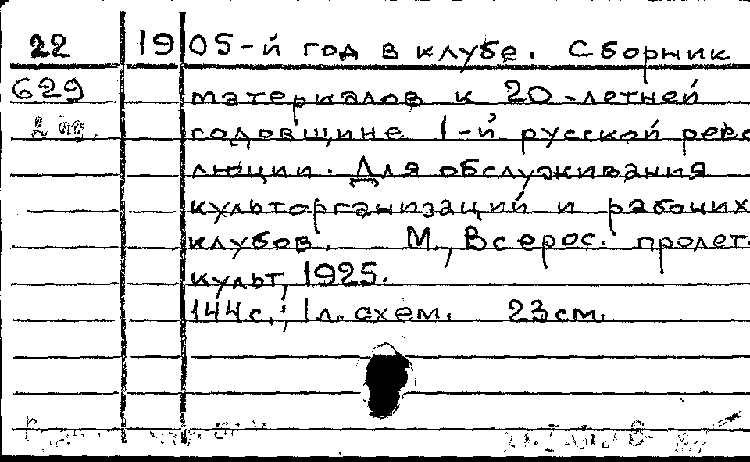 22 1905-й год в клубе. Сборник
629 материалов к 20-летней
2 годовщине 1-й русской рево
люции. Для обслуживания
культорганизаций и рабочих
клубов. М., Всерос. пролет-
культ, 1925.
144с.; 1л. схем. 23см.